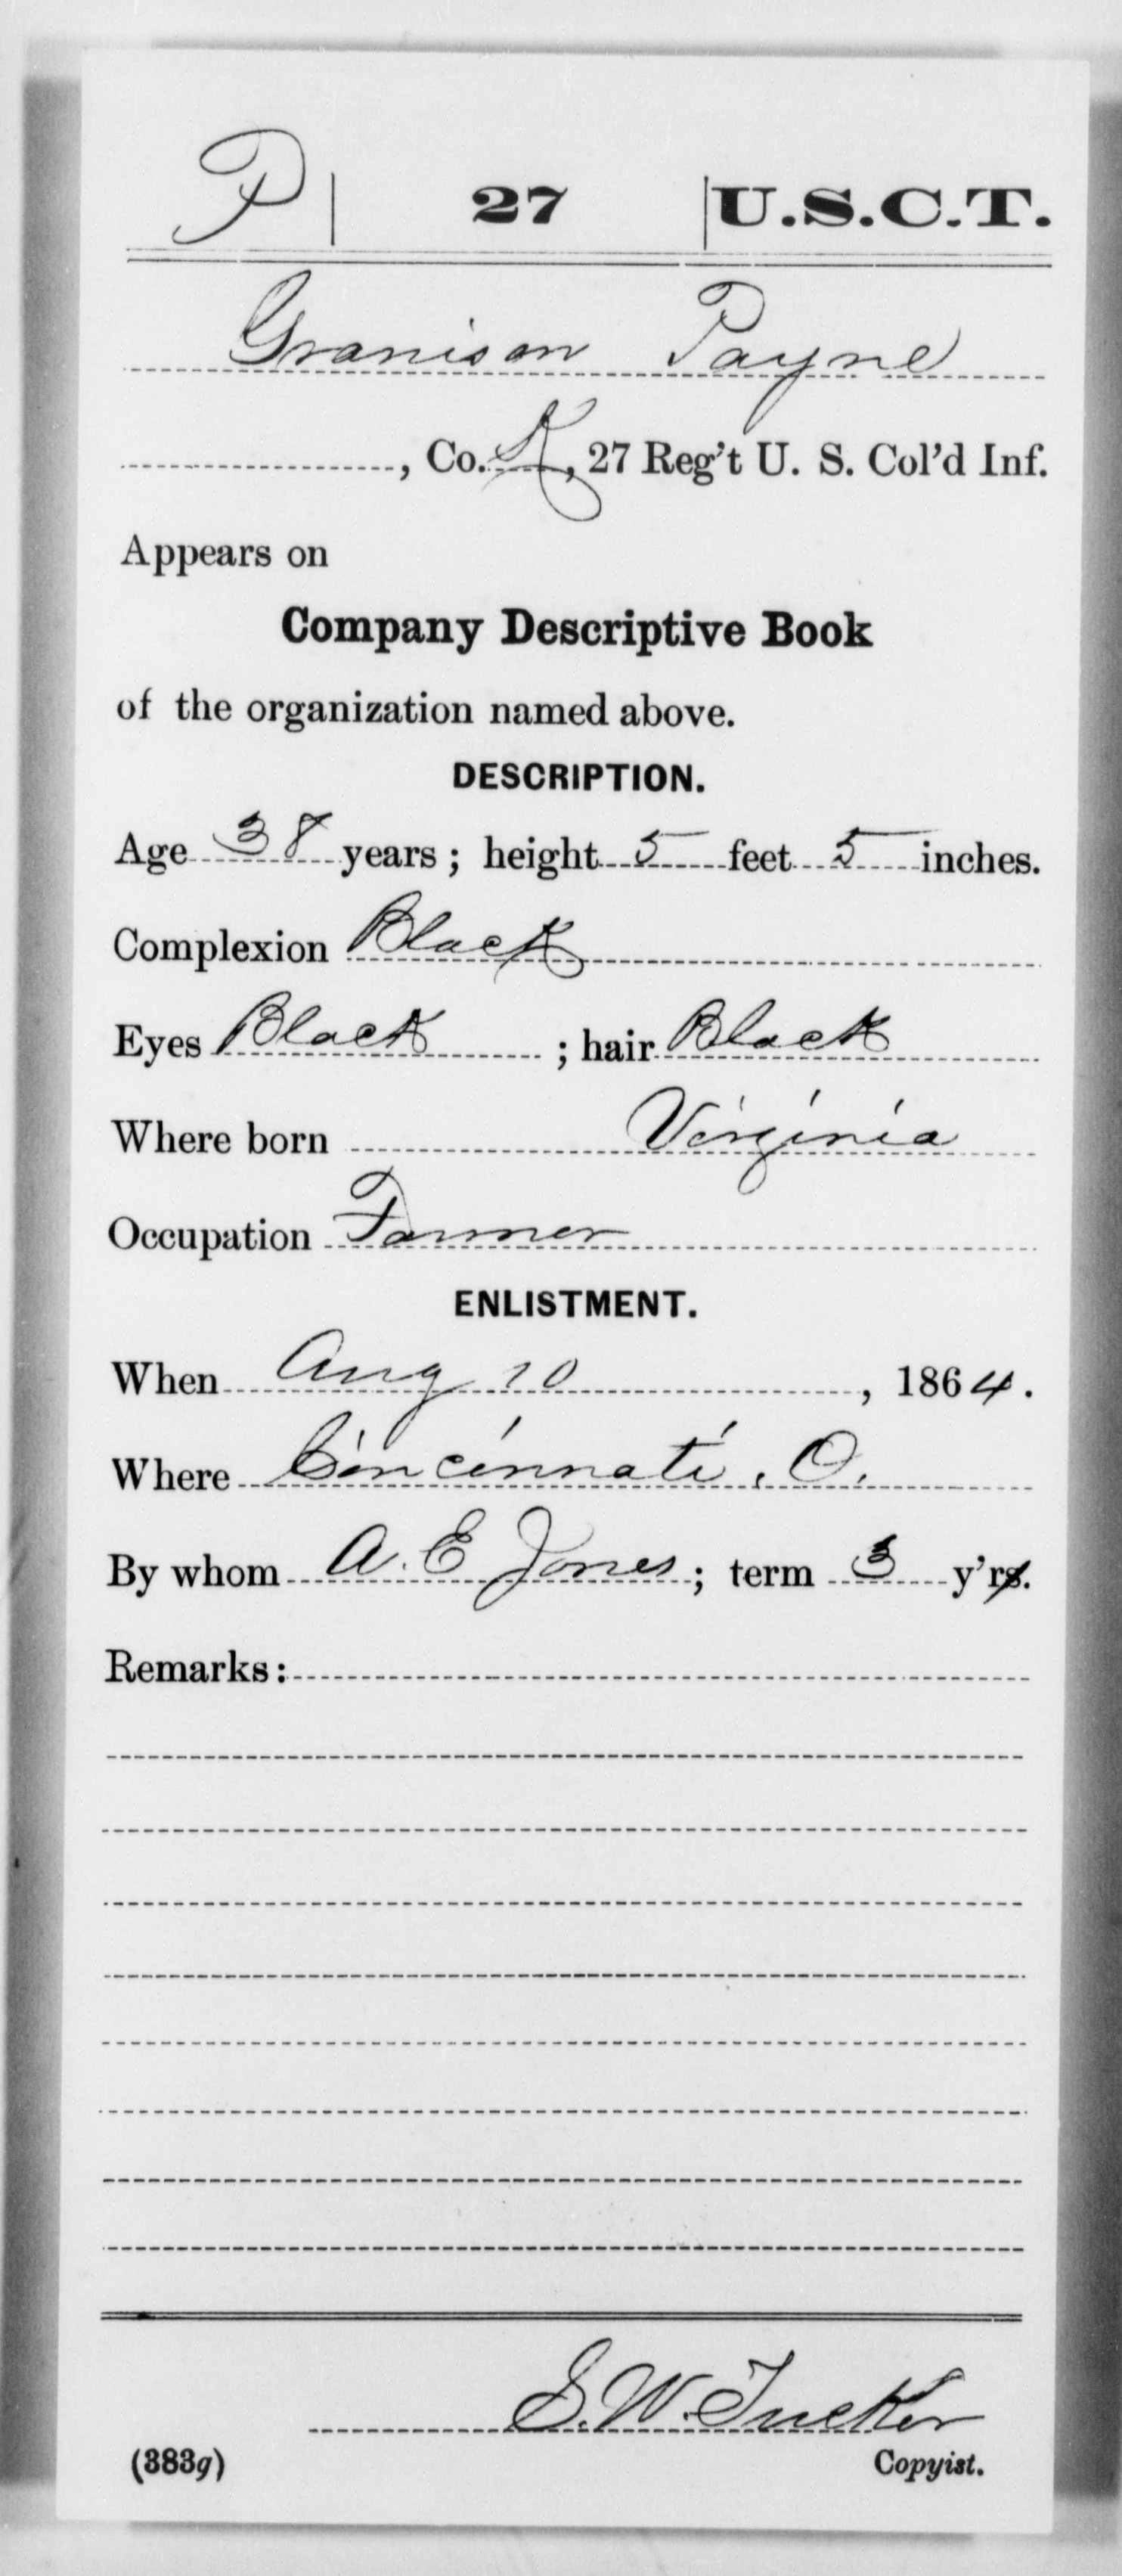 P | 27 | U.S.C.T.
Granison Payne
, Co. K, 27 Reg't U. S. Col'd Inf.
Appears on
Company Descriptive Book
of the organization named above.
DESCRIPTION.
Age 38 years; height 5 feet 5 inches.
Complexion Black
Eyes Black ; hair Black
Where born Virginia
Occupation Farmer
ENLISTMENT.
When Aug 10, 1864.
Where Cincinnati, O.
By whom A. E Jones; term 3 y'rs.
Remarks:
S. W. Tucker
(383g) Copyist.